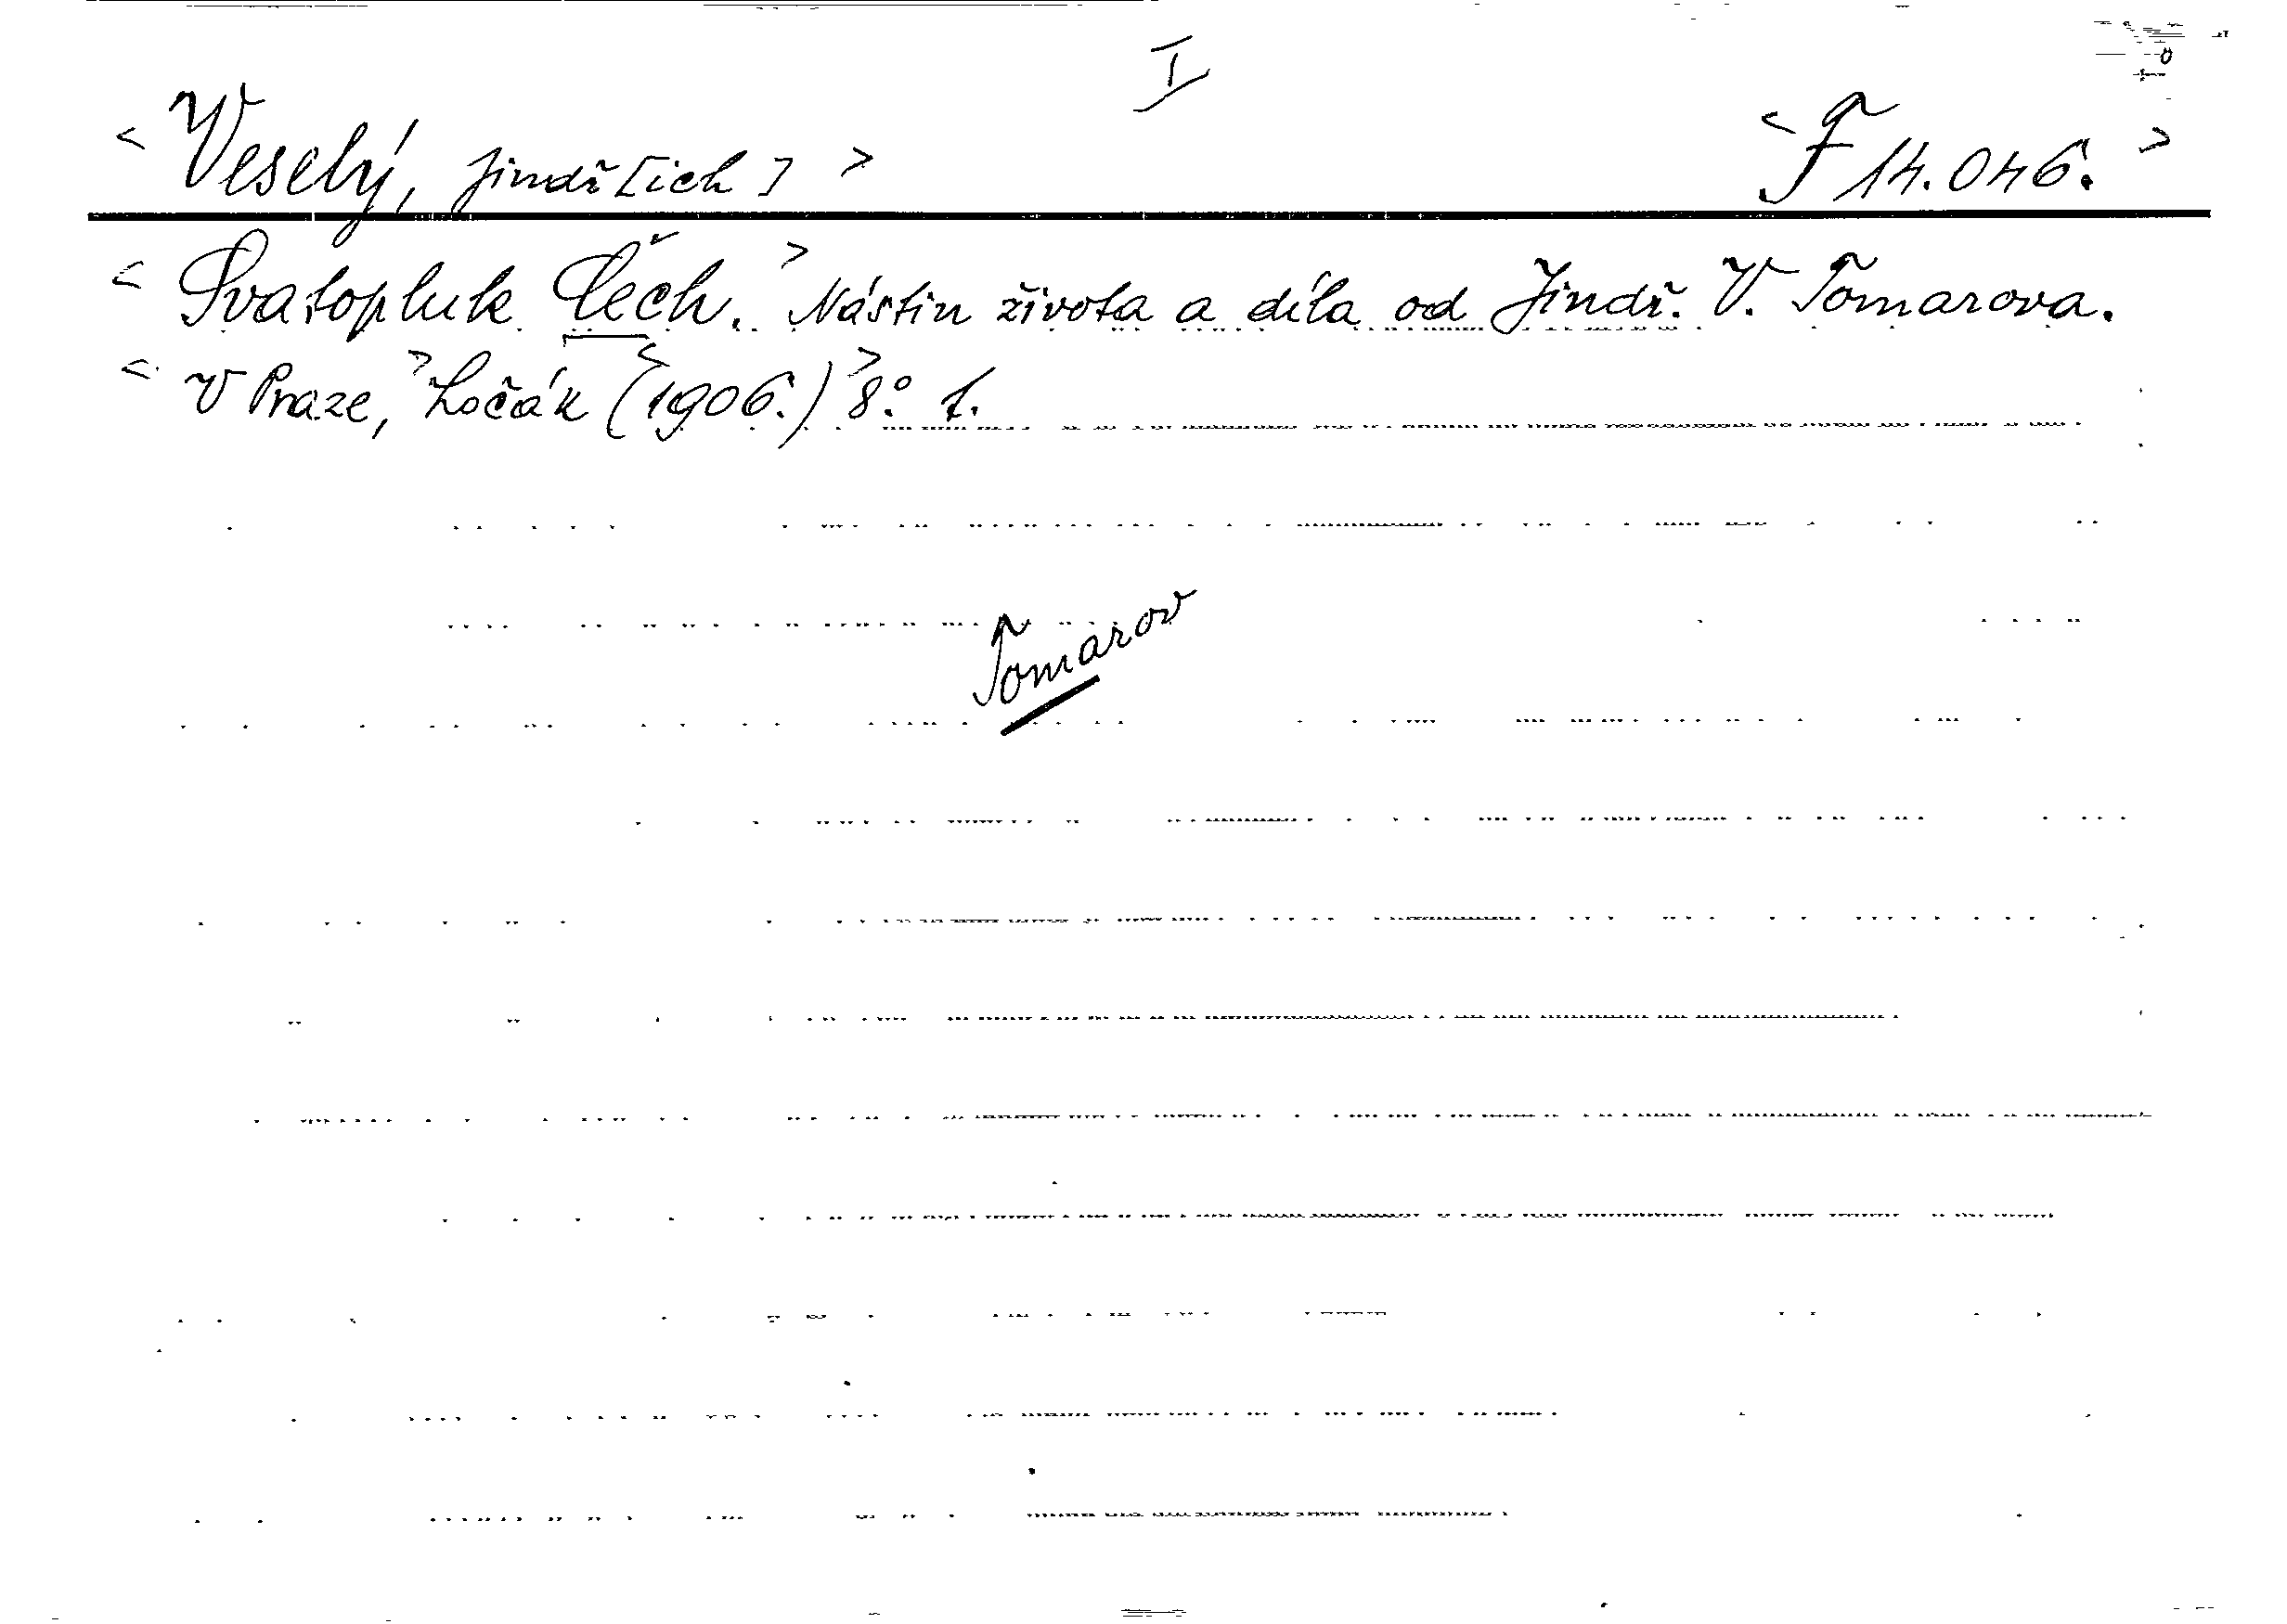 I
< Veselý, Jindř[ich] > < F 14.046. >
< Svatopluk Čech. > Nástin života a díla od Jindř. V. Tomarova.
< V Praze, > Ločák < (1906.) > 8°. 1.
Tomarov